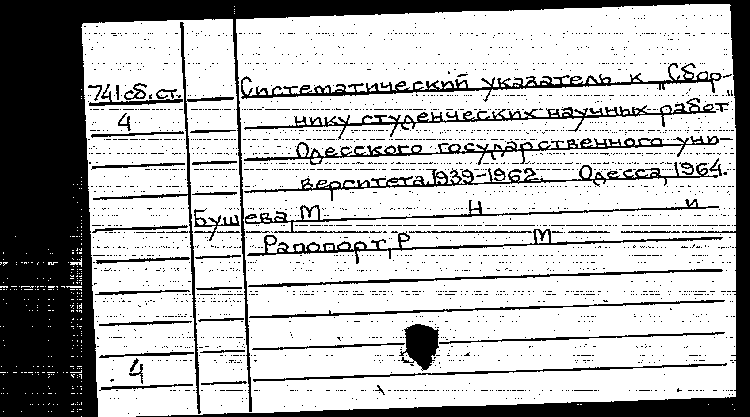 741 сб.ст. Систематический указатель к „Сбор-
4 нику студенческих научных работ
Одесского государственного уни-
верситета. 1939-1962. Одесса, 1964.
Бушева, М Н и
Рапопорт, Р М
4